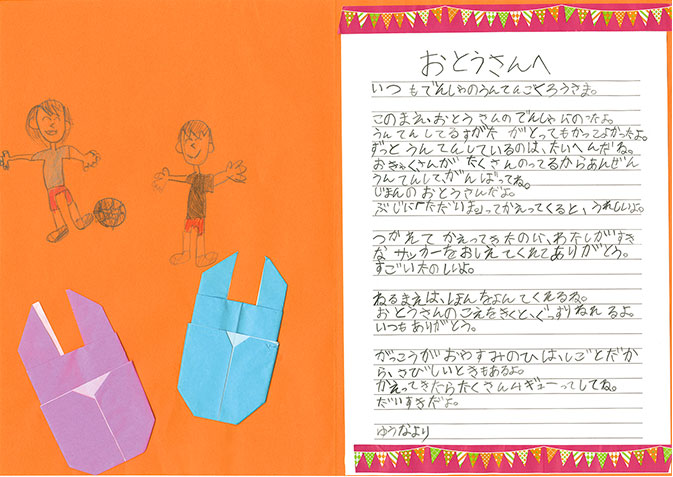 おとうさんへ
いつもでんしゃのうんてんごくろうさま。
このまえ、おとうさんのでんしゃにのったよ。
うんてんしてるすがたがとってもかっこよかったよ。
ずっとうんてんしているのは、たいへんだね。
おきゃくさんがたくさんのってるからあんぜん
うんてんして、がんばってね。
じまんのおとうさんだよ。
ぶじに「ただいま。」ってかえってくると、うれしいよ。
つかえてかえってきたのに、わたしがすき
なサッカーをおしえてくれてありがとう。
すごいたのしいよ。
ねるまえは、ほんをよんでくれるね。
おとうさんのこえをきくと、ぐっすりねれるよ。
いつもありがとう。
がっこうがおやすみのひは、しごとだか
ら、さびしいときもあるよ。
かえってきたらたくさんムギューってしてね。
だいすきだよ。
ゆうなより